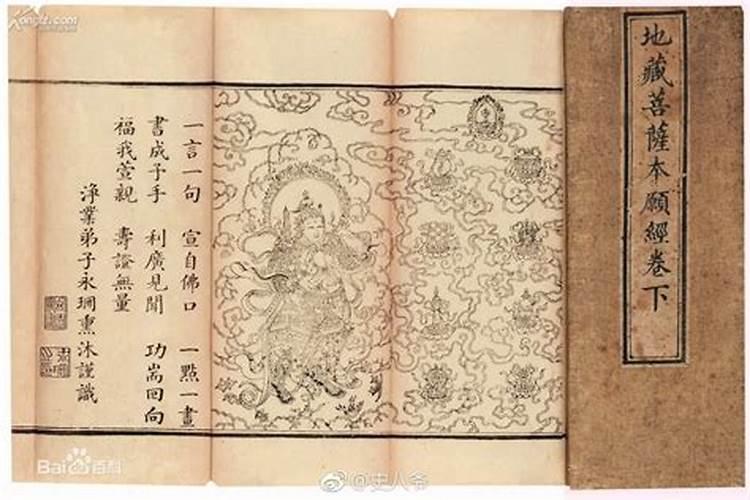 地藏菩薩本願經卷下
一言一句 宣自佛口 一點一畫
書成予手 利廣見聞 功耑回向
福我萱親 壽證無量
淨業弟子永熏沐謹識
Kongfz.com
Bai 百科
@史人爷